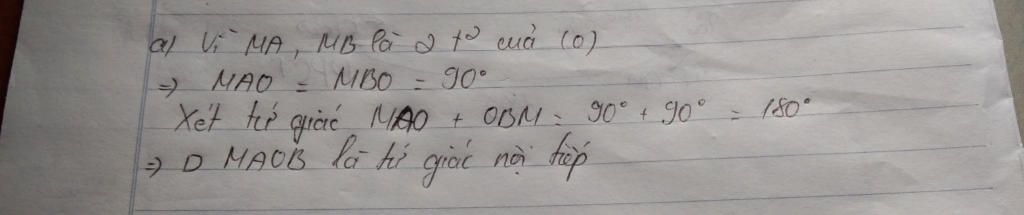 a) Vì MA, MB là 2 t² cuả (O)
=> MAO = MBO = 90°
Xét tứ giác MAO + OBM = 90° + 90° = 180°
=> D MAOB là tứ giác nội tiếp